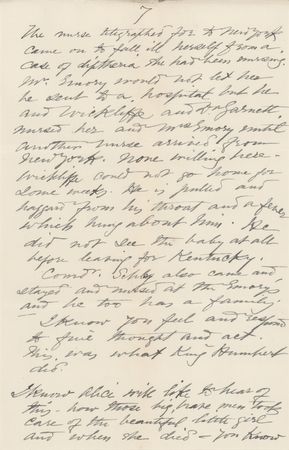 7
The nurse telegraphed for to New York
came on to fall ill herself from a
case of diptheria she had been nursing.
Mr. Emory would not let her
be sent to a hospital but he
and Wickliffe and Dr Garnett
nursed her and Mrs Emory until
another nurse arrived from
New York. None willing here.
Wickliffe could not go home for
some weeks. He is pulled and
haggard from his throat and a fever
which hung about him. He
did not see the baby at all
before leaving for Kentucky.
Comd. Schley also came and
stayed and nursed at the Emorys
and he too has a family.
I know you feel and respond
to fine thought and act.
This was what King Humbert
did.
I know Alice will like to hear of
this - how those big brave men took
care of the beautiful little girl
and when she died - you know